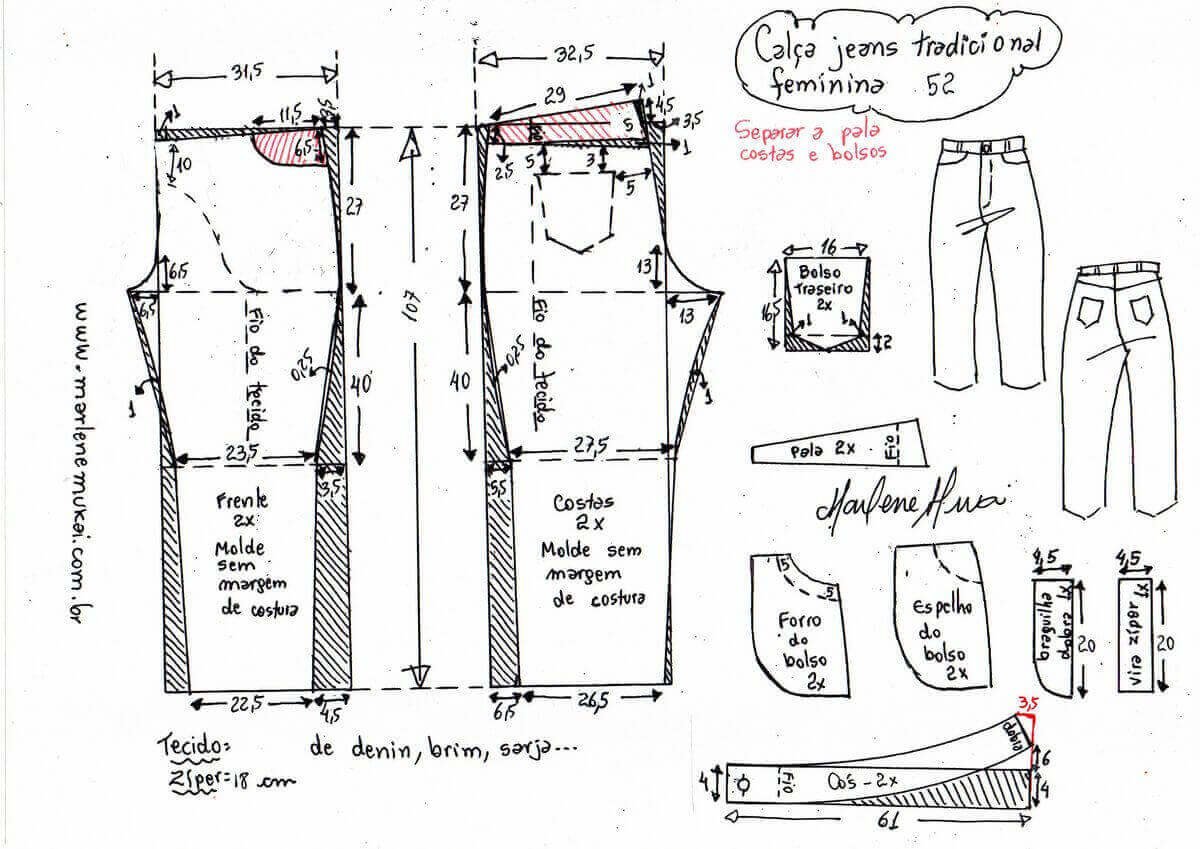 Calça jeans tradicional
feminina 52
Separar a pala
costas e bolsos
31,5
1
11,5
6,5
10
27
6,5
6,5
Fio do tecido
0,25
40
1
23,5
3,5
Frente
2x
Molde
sem
margem
de costura
22,5
4,5
107
32,5
29
1
4,5
3,5
5
Fio
1
2,5
5
3
5
27
13
13
Fio do tecido
0,25
40
1
27,5
5,5
Costas
2x
Molde sem
margem
de costura
6,5
26,5
www.marlenemukai.com.br
Tecido= de denin, brim, sarja...
Zíper=18 cm
16
Bolso
Traseiro
2x
16,5
1
1
2
Pala 2x
Fio
5
5
Forro
do
bolso
2x
Espelho
do
bolso
2x
4,5
braguilha
dobra 1x
20
4,5
vira zíper 1x
20
3,5
dobra
6
4
Fio
Cós - 2x
4
61